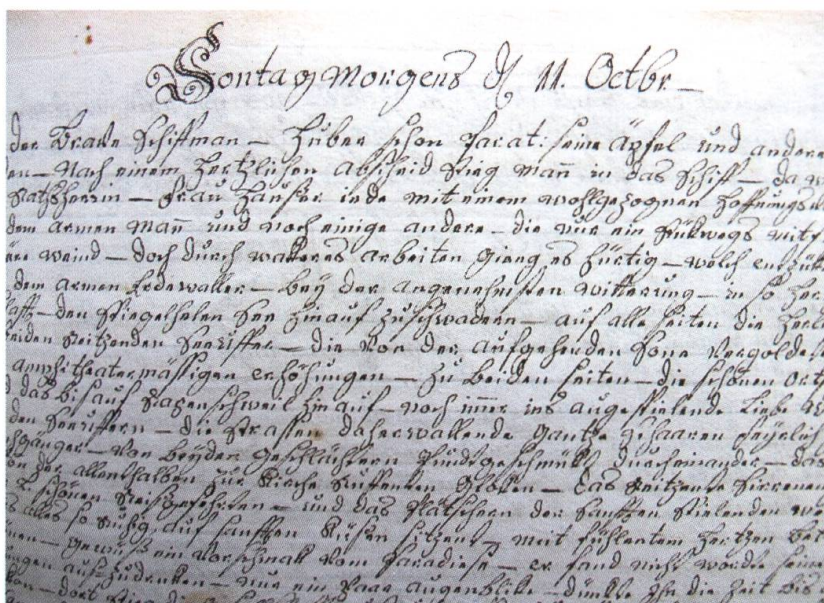 Sontag morgens d 11. Octbr
der Brave Schiffman – Huber schon Parat: seine Äpfel und andere
en – Nach einem Hertzlichen abscheid stieg man in das Schiff – da w
Rathsherrin – Frau Hauser inde mit einem wohlgezognen Hoffnungs
dem armen Man und noch einige andere – die nur ein stükwegs mit
wind – doch durch wakeres arbeiten gieng es hurtig – welch entzük
dem armen Erdewaller – bey der angenehmsten witterung – in so
den Spiegelhelen See hinauf zu schwadern – auf alle seiten die
beiden reitzenden Seeuffer – die von der aufgehenden Sone vergoldete
amphiteatermässigen erhöhungen – zu beiden seiten – die schönen ort
das bis auf Rapenschweil hinauf – noch imer ins aug spielende liebe
den Seeuffern – die strassen daherwallende gantze schaaren
gänger – von beyden geschlächtern durcheinander – das
der allenthalben zur Kirche ruffenten Gloken – das reitzende
schönen Reisgefehrten – und das Plätschern der sanften wellen
alles so ruhig auf sanften Küssen sitzend – mit fühlentem Hertzen
gewüss ein vorschmak vom Paradiese – er fand nicht worte seine
auszudruken – nur ein Paar augenblike – dünkte Ihn die Zeit bis